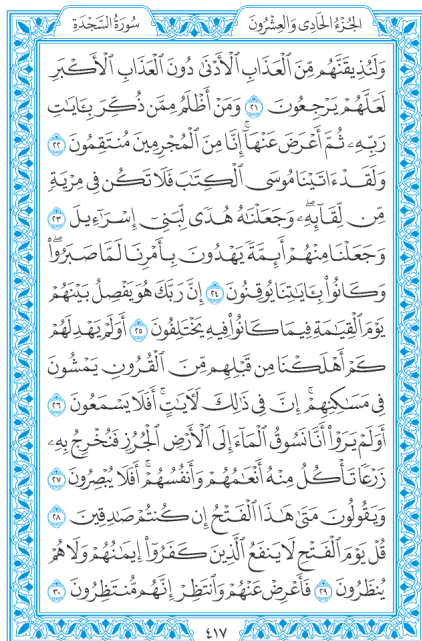 الجُزْءُ الحَادِى وَالعِشْرُونَ سُورَةُ السَّجْدَةِ
وَلَنُذِيقَنَّهُم مِّنَ ٱلْعَذَابِ ٱلْأَدْنَىٰ دُونَ ٱلْعَذَابِ ٱلْأَكْبَرِ
لَعَلَّهُمْ يَرْجِعُونَ ٢١ وَمَنْ أَظْلَمُ مِمَّن ذُكِّرَ بِـَٔايَٰتِ
رَبِّهِۦ ثُمَّ أَعْرَضَ عَنْهَآۚ إِنَّا مِنَ ٱلْمُجْرِمِينَ مُنتَقِمُونَ ٢٢
وَلَقَدْ ءَاتَيْنَا مُوسَى ٱلْكِتَٰبَ فَلَا تَكُن فِى مِرْيَةٍ
مِّن لِّقَآئِهِۦۖ وَجَعَلْنَٰهُ هُدًى لِّبَنِىٓ إِسْرَٰٓءِيلَ ٢٣
وَجَعَلْنَا مِنْهُمْ أَئِمَّةً يَهْدُونَ بِأَمْرِنَا لَمَّا صَبَرُوا۟ۖ
وَكَانُوا۟ بِـَٔايَٰتِنَا يُوقِنُونَ ٢٤ إِنَّ رَبَّكَ هُوَ يَفْصِلُ بَيْنَهُمْ
يَوْمَ ٱلْقِيَٰمَةِ فِيمَا كَانُوا۟ فِيهِ يَخْتَلِفُونَ ٢٥ أَوَلَمْ يَهْدِ لَهُمْ
كَمْ أَهْلَكْنَا مِن قَبْلِهِم مِّنَ ٱلْقُرُونِ يَمْشُونَ
فِى مَسَٰكِنِهِمْۚ إِنَّ فِى ذَٰلِكَ لَـَٔايَٰتٍۖ أَفَلَا يَسْمَعُونَ ٢٦
أَوَلَمْ يَرَوْا۟ أَنَّا نَسُوقُ ٱلْمَآءَ إِلَى ٱلْأَرْضِ ٱلْجُرُزِ فَنُخْرِجُ بِهِۦ
زَرْعًا تَأْكُلُ مِنْهُ أَنْعَٰمُهُمْ وَأَنفُسُهُمْۚ أَفَلَا يُبْصِرُونَ ٢٧
وَيَقُولُونَ مَتَىٰ هَٰذَا ٱلْفَتْحُ إِن كُنتُمْ صَٰدِقِينَ ٢٨
قُلْ يَوْمَ ٱلْفَتْحِ لَا يَنفَعُ ٱلَّذِينَ كَفَرُوٓا۟ إِيمَٰنُهُمْ وَلَا هُمْ
يُنظَرُونَ ٢٩ فَأَعْرِضْ عَنْهُمْ وَٱنتَظِرْ إِنَّهُم مُّنتَظِرُونَ ٣٠
٤١٧